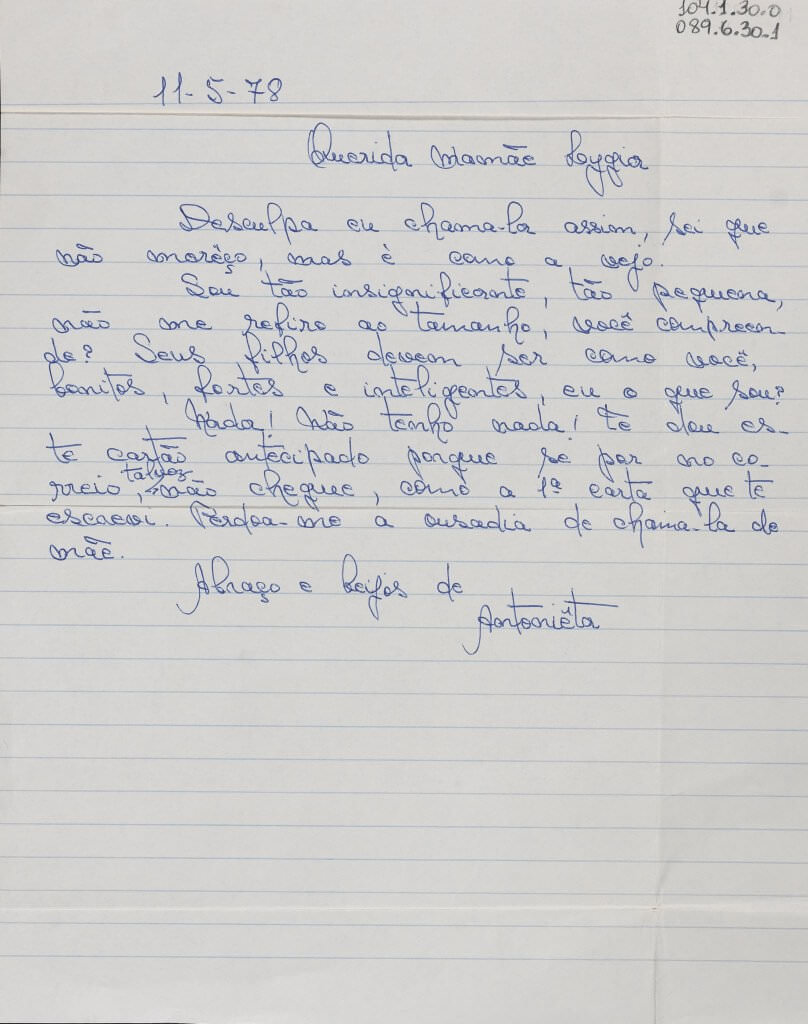 104.1.30.0
089.6.30-1
11-5-78
Querida Mamãe Lyygia
Desculpa eu chama-la assim, sei que
não merêço, mas è como a vejo.
Sou tão insignificante, tão pequena,
não me refiro ao tamanho, você compreen-
de? Seus filhos devem ser como você,
bonitos, fortes e inteligentes, eu o que sou?
Nada! Não tenho nada! Te dou es-
te cartão antecipado porque se por no co-
rreio, talvez não chegue, como a 1ª carta que te
escrevi. Perdoa-me a ousadia de chama-la de
mãe.
Abraço e beijos de
Antoniêta